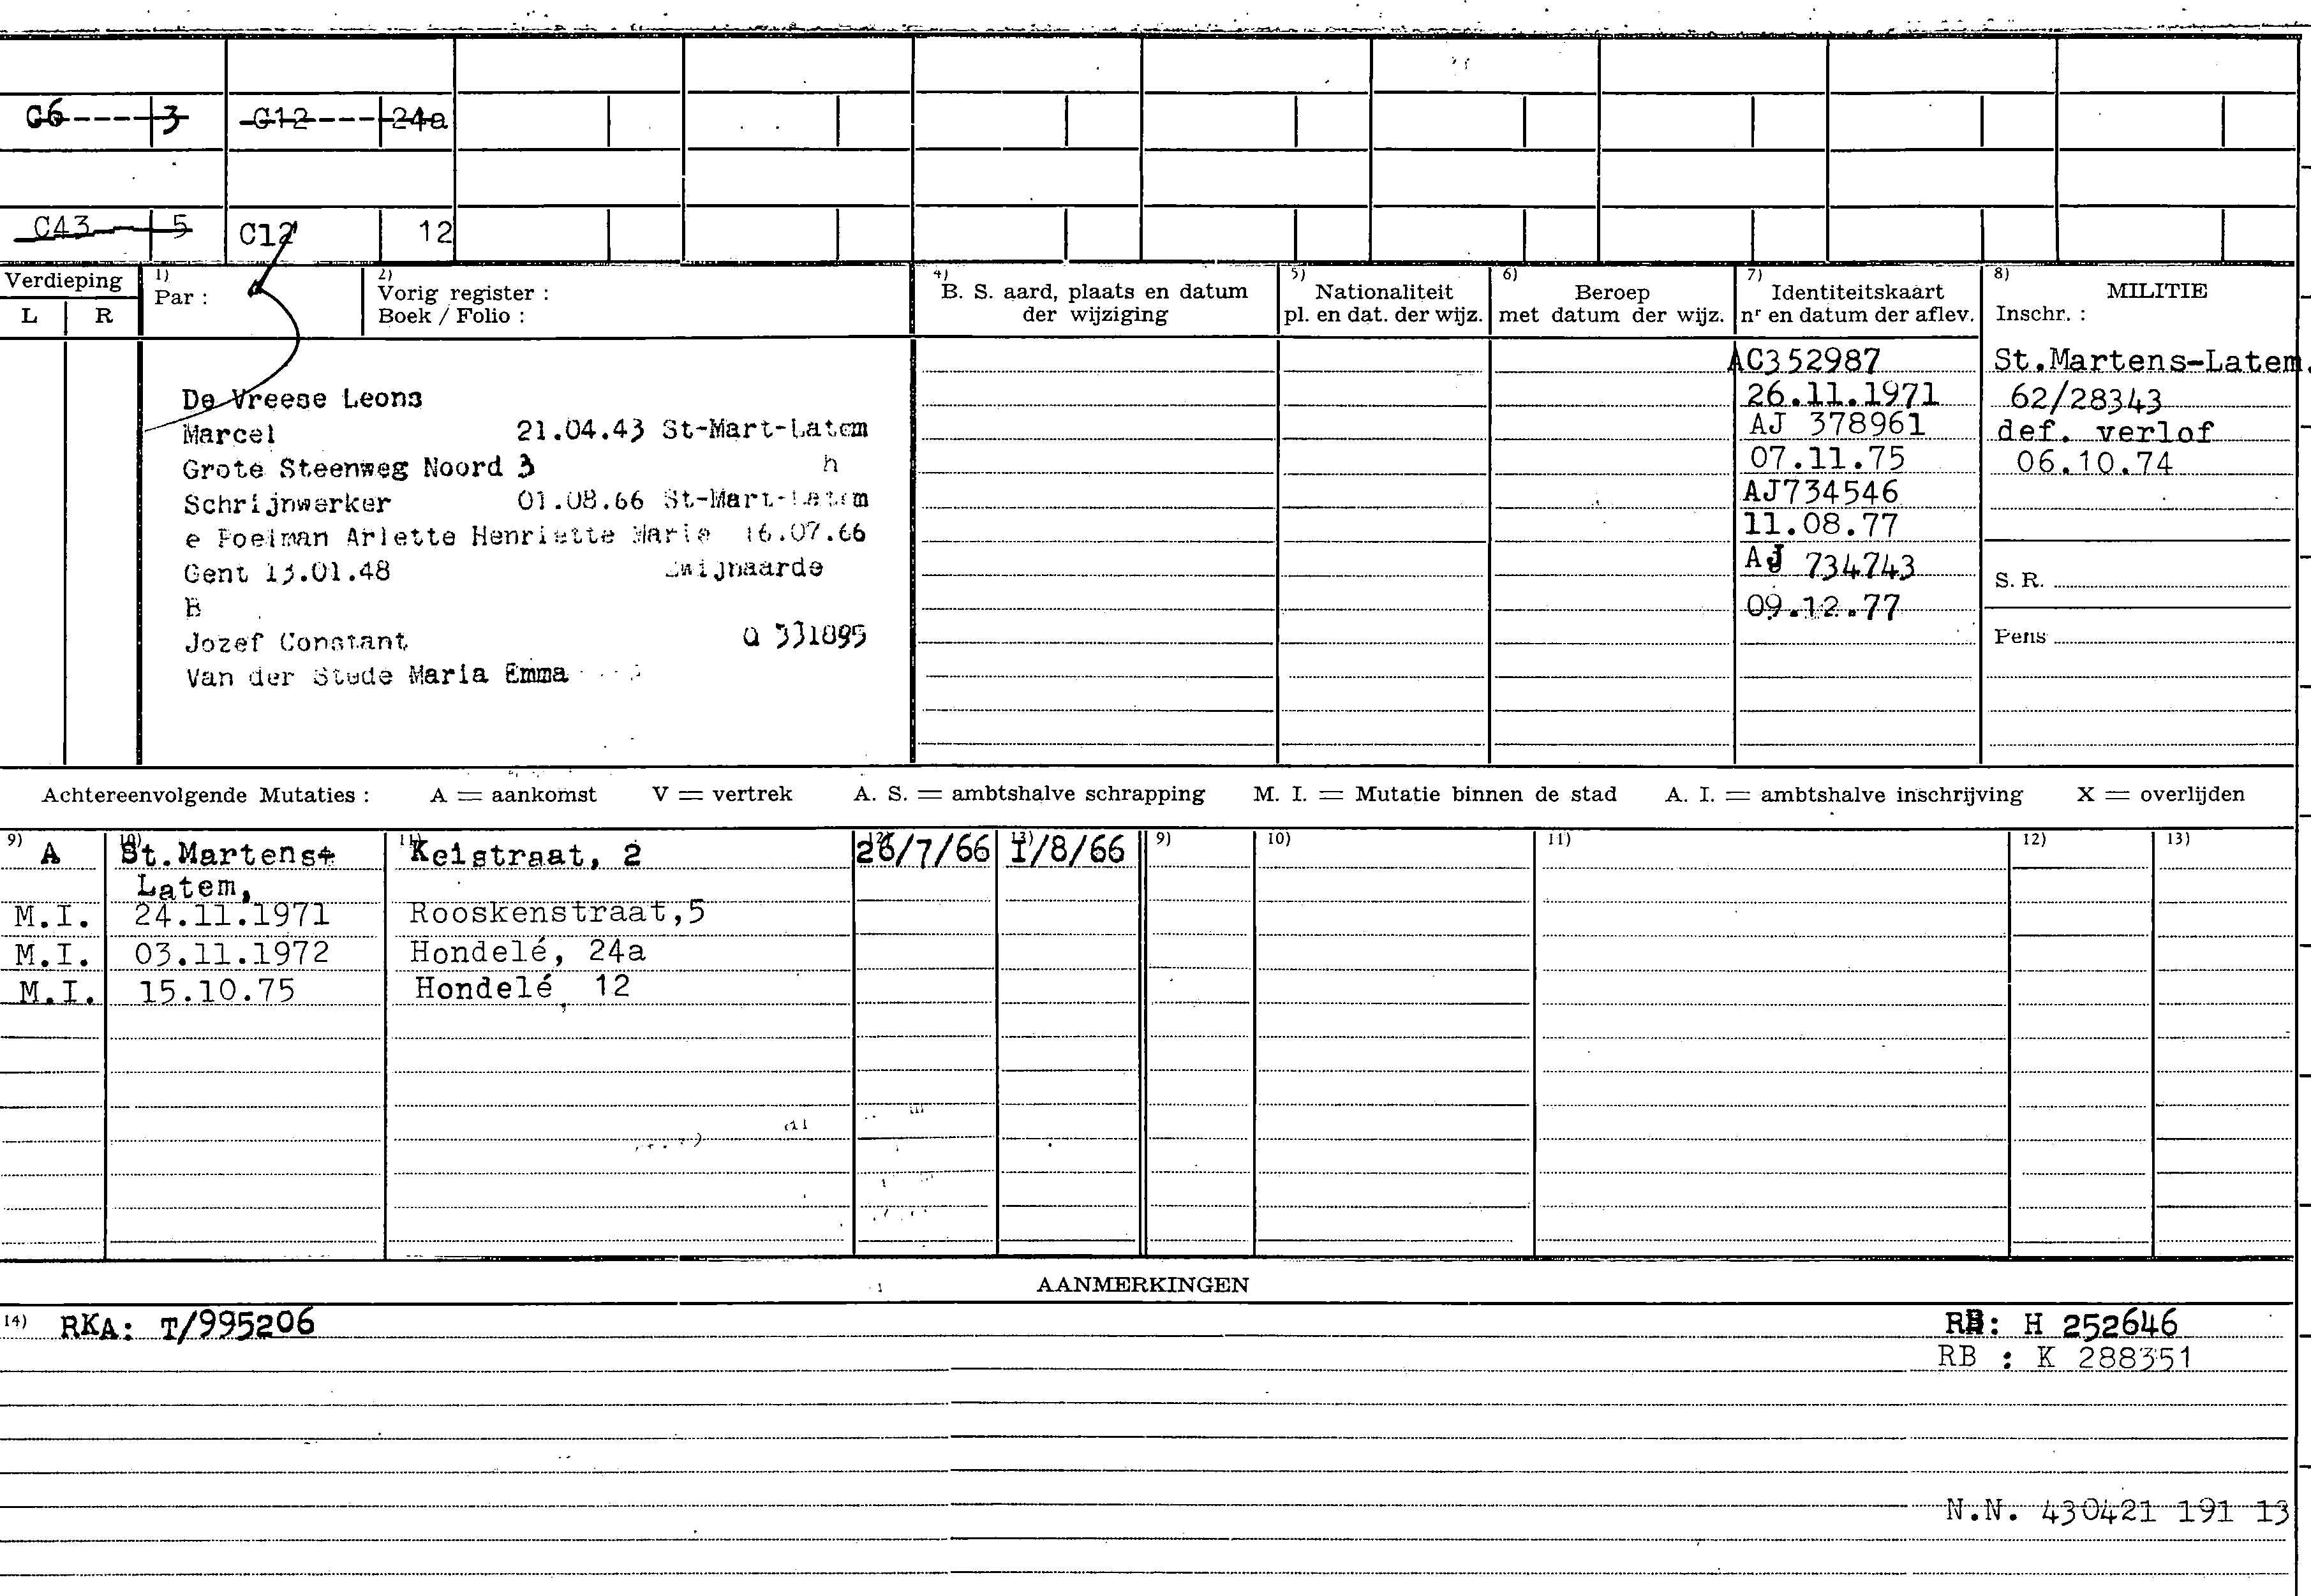 C6----3 C12----24a
C43 5 C12 12
Verdieping
L R
1) Par :
2) Vorig register :
Boek / Folio :
4) B. S. aard, plaats en datum
der wijziging
5) Nationaliteit
pl. en dat. der wijz.
6) Beroep
met datum der wijz.
7) Identiteitskaart
nr en datum der aflev.
8) MILITIE
Inschr. :
De Vreese Leons
Marcel 21.04.43 St-Mart-Latem
Grote Steenweg Noord 3 h
Schrijnwerker 01.08.66 St-Mart-Latem
e Poelman Arlette Henriette Marie 16.07.66
Gent 13.01.48 Zwijnaarde
B
Jozef Constant Q 331895
Van der Stude Maria Emma
AC352987
26.11.1971
AJ 378961
07.11.75
AJ734546
11.08.77
AJ 734743
09.12.77
St.Martens-Latem.
62/28343
def. verlof
06.10.74
S. R.
Pens
Achtereenvolgende Mutaties : A = aankomst V = vertrek A. S. = ambtshalve schrapping M. I. = Mutatie binnen de stad A. I. = ambtshalve inschrijving X = overlijden
9) 10) 11) 12) 13) 9) 10) 11) 12) 13)
A St.Martens- Keistraat, 2 26/7/66 1/8/66
Latem,
M.I. 24.11.1971 Rooskenstraat,5
M.I. 03.11.1972 Hondelé, 24a
M.I. 15.10.75 Hondelé, 12
AANMERKINGEN
14) RKA: T/995206 RB: H 252646
RB : K 288351
N.N. 430421 191 13